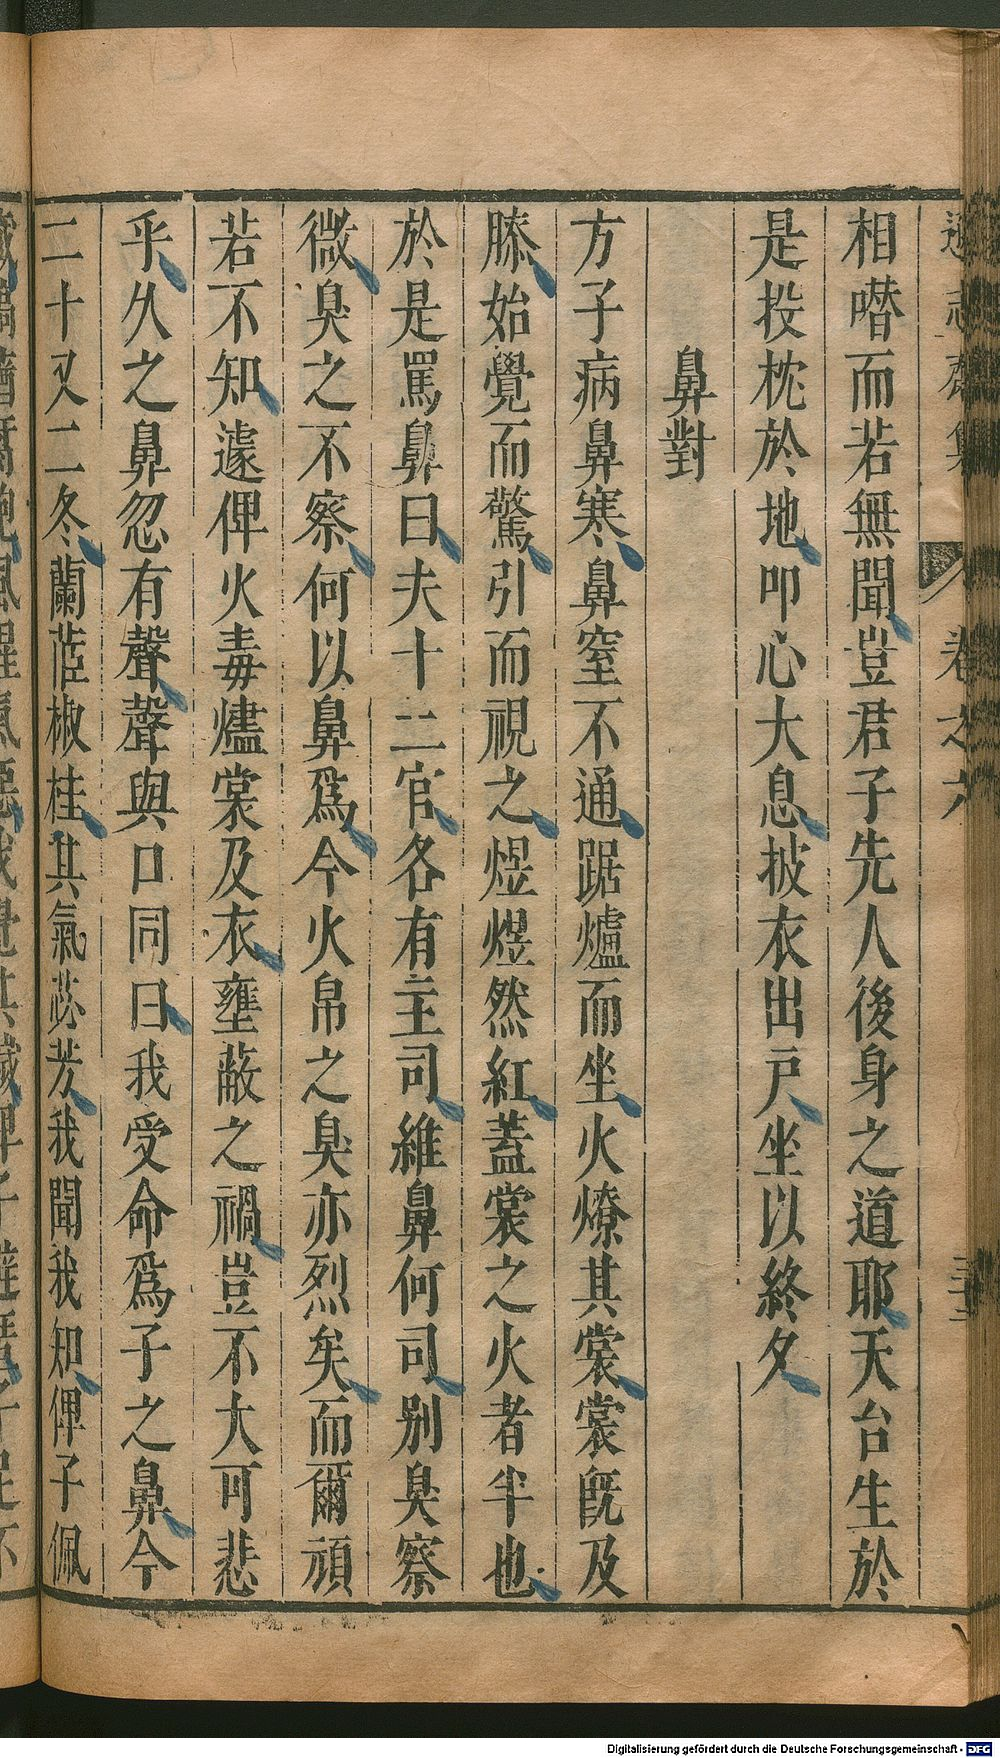 遜志齋集 卷之六
相噆而若無聞豈君子先人後身之道耶天台生於
是投枕於地叩心大息披衣出戶坐以終夕
鼻對
方子病鼻寒鼻窒不通踞爐而坐火燎其裳裳旣及
膝始覺而驚引而視之煜煜然紅蓋裳之火者半也
於是罵鼻曰夫十二官各有主司維鼻何司别臭察
微臭之不察何以鼻爲今火帛之臭亦烈矣而爾頑
若不知遽俾火毒燼裳及衣壅蔽之禍豈不大可悲
乎久之鼻忽有聲聲與口同曰我受命爲子之鼻今
二十又二冬蘭茝椒桂其氣苾芳我聞我知俾子佩
Digitalisierung gefördert durch die Deutsche Forschungsgemeinschaft - DFG